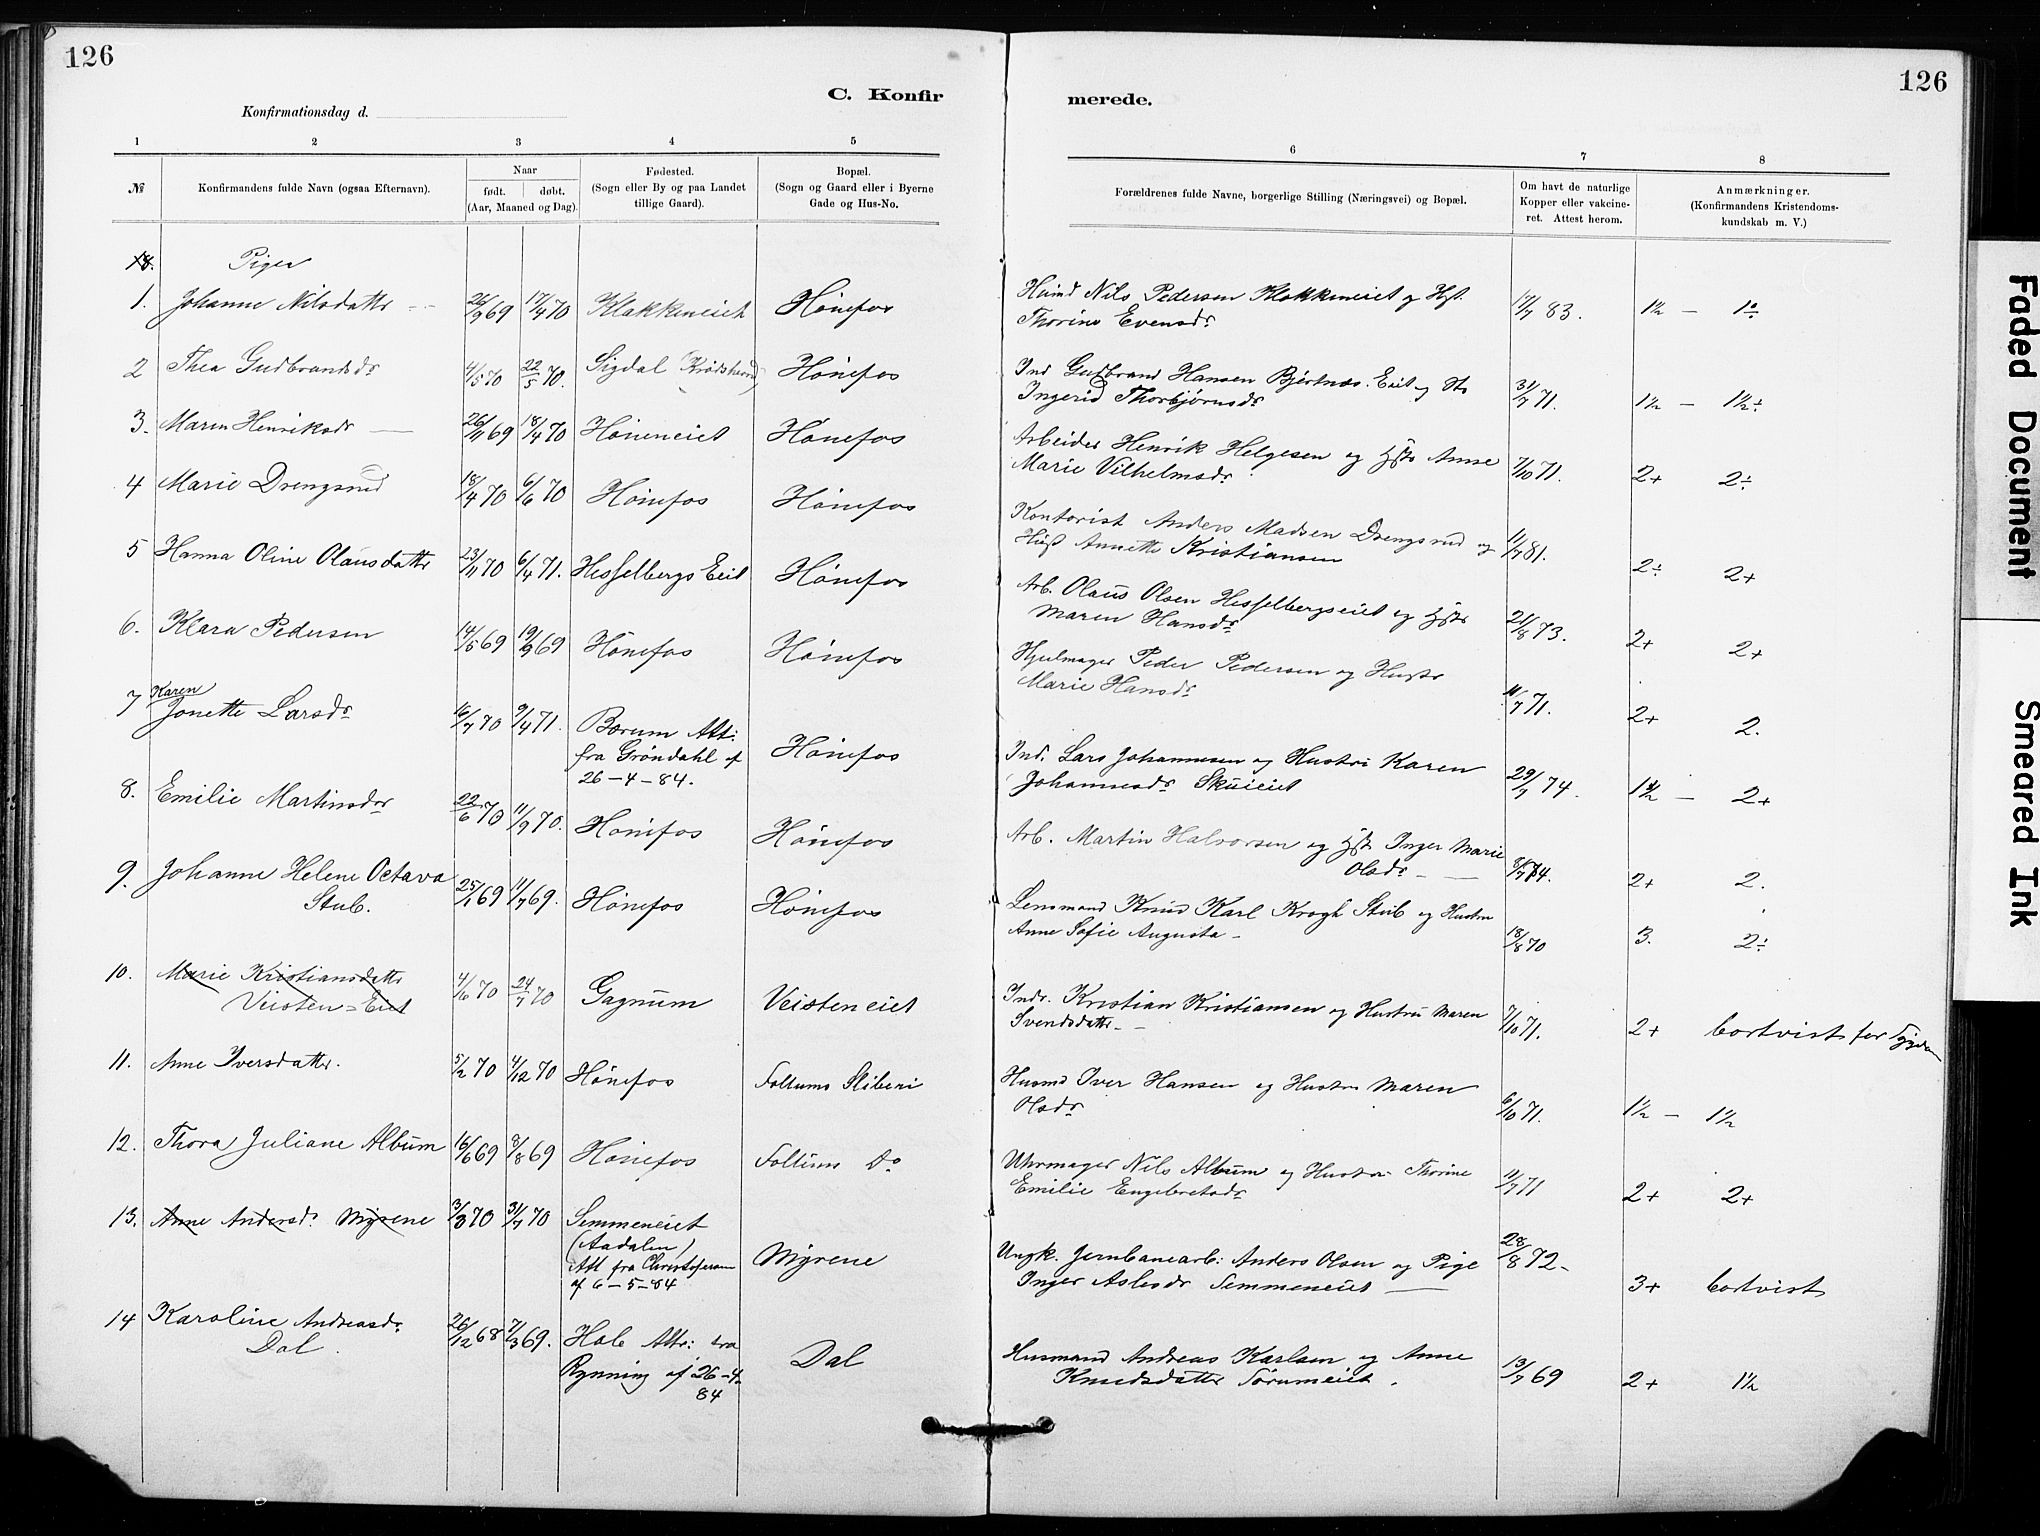 126
126
C. Konfir merede.
Konfirmationsdag d.
1 2 3 4 5 6 7 8
№ Konfirmandens fulde Navn (ogsaa Efternavn).
Naar født. døbt. (Aar, Maaned og Dag).
Fødested. (Sogn eller By og paa Landet tillige Gaard).
Bopæl. (Sogn og Gaard eller i Byerne Gade og Hus-No.
Forældrenes fulde Navne, borgerlige Stilling (Næringsvei) og Bopæl.
Om havt de naturlige Kopper eller vakcineret. Attest herom.
Anmærkninger. (Konfirmandens Kristendomskundskab m. V.)
Piger
1. Johanne Nilsdatter 26/9 69 17/4 70 Klækkeneiet Hønefos Husmd Nils Pedersen Klækkeneiet og Hst.
Thorine Evensdr 17/7 83. 1½ — 1÷
2 Thea Gudbrandsdr 4/5 70 22/5 70. Sigdal (Krødsherred) Hønefos Ind Gudbrand Hansen Bjertnæs Eiet og Hst
Ingerid Thorbjørnsdr 31/7 71. 1½ — 1½÷
3. Maren Henriksdr 26/11 69 18/4 70 Høneneiet Hønefos Arbeider Henrik Helgesen og Hst Anne
Marie Vilhelmsdr 7/10 71. 2+ 2÷
4 Marie Drengsrud 18/4 70 6/6 70 Hønefos Hønefos Kontorist Anders Madsen Drengsrud og
Hust Annette Kristiansen 11/7 81. 2÷ 2+
5 Hanna Oline Olausdatter 23/11 70 6/4 71. Hesselbergs Eiet Hønefos Arb. Olaus Olsen Hesselbergseiet og Hst
Maren Hansdr 21/8 73. 2+ 2+
6. Klara Pedersen 14/5 69 19/9 69 Hønefos Hønefos Hjulmager Peder Pedersen og Hustr
Marie Hansdr 11/7 71. 2+ 2.
7 Karen
Jonette Larsdr 16/7 70 9/4 71. Bærum Att:
fra Grøndahl af
26-4-84. Hønefos Ind. Lars Johannesen og Hustru Karen
Johannesdr Skuieiet 29/7 74. 1½ — 2+
8. Emilie Martinsdr 22/6 70 11/9 70. Hønefos Hønefos Arb. Martin Halvorsen og Hst Inger Marie
Olsdr 2+ 2.
9. Johanne Helene Octava
Stub. 25/1 69 11/7 69. Hønefos Hønefos Lensmand Knud Karl Krogh Stub og Hustru
Anne Sofie Augusta 18/8 70 3. 2÷
10. Marie Kristiansdatter
Veisten=Eiet 4/6 70 24/7 70 Gagnum Veisteneiet Indr. Kristian Kristiansen og Hustru Maren
Svendsdatter 7/10 71. 2+ bortvist for
11. Anne Iversdatter. 5/2 70 4/12 70 Hønefos Follums Sliberi Husmd Iver Hansen og Hustru Maren
Olsdr 6/10 71. 1½ — 1½
12. Thora Juliane Album 16/6 69 8/8 69 Hønefos Follums Do Uhrmager Nils Album og Hustru Thorine
Emilie Engebretsdr 11/7 71 2+ 2+
13. Anne Andersdr Myrene 3/3 70 31/7 70 Semmeneiet
(Aadalen)
Att fra Christofersen
af 6-5-84 Myrene Ungk. Jernbanearb: Anders Olsen og Pige
Inger Aslesdr Semmeneiet 28/8 72 3+ bortvist
14 Karoline Andreasdr
Dal. 26/12 68 7/3 69. Hole Attr: fra
Rynning af 26-4-
84 Dal Husmand Andreas Karlsen og Anne
Knudsdatter Sørumeiet. 13/7 69 2+ 1½
Faded Document
Smeared Ink